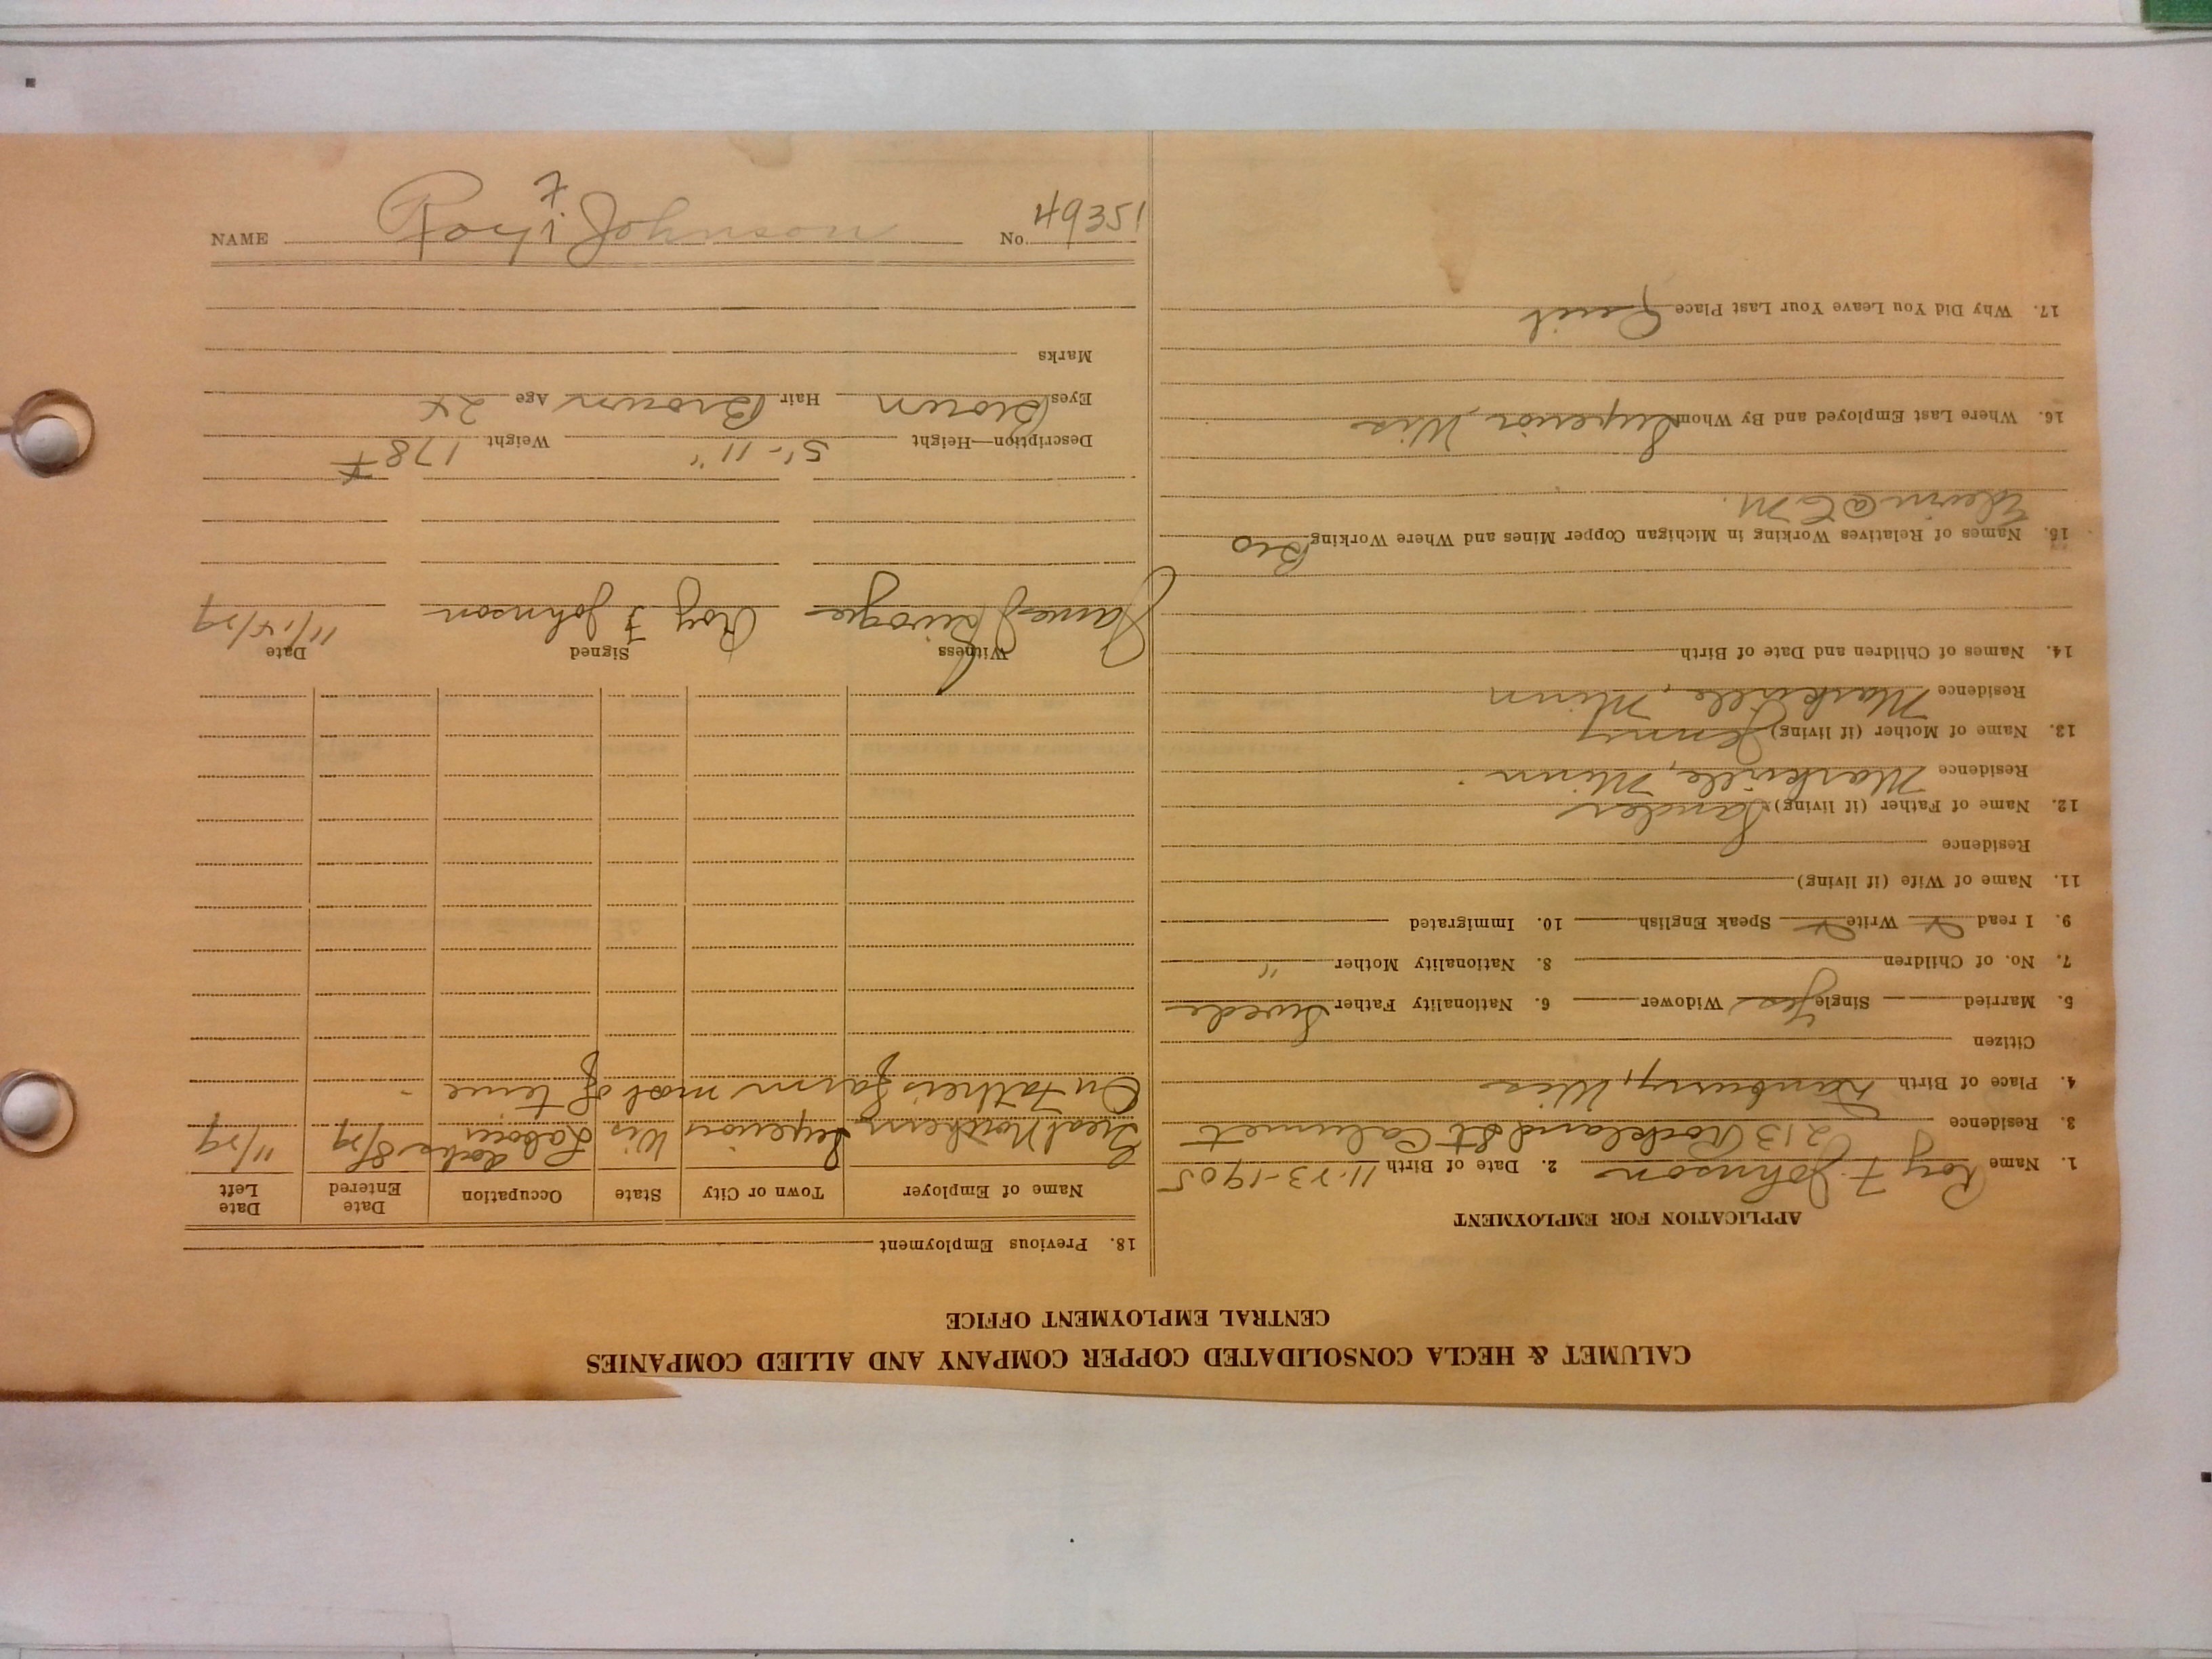 CALUMET & HECLA CONSOLIDATED COPPER COMPANY AND ALLIED COMPANIES
CENTRAL EMPLOYMENT OFFICE
APPLICATION FOR EMPLOYMENT
1. Name Roy F Johnson 2. Date of Birth 11-23-1905
3. Residence 213 Rockland St Calumet
4. Place of Birth Danburry, Wis
Citizen
5. Married Single Yes Widower 6. Nationality Father Swede
7. No. of Children 8. Nationality Mother "
9. I read x Write x Speak English 10. Immigrated
11. Name of Wife (if living)
Residence
12. Name of Father (if living) Sander
Residence Markville, Minn
13. Name of Mother (if living) Jenny
Residence Markville, Minn
14. Names of Children and Date of Birth
15. Names of Relatives Working in Michigan Copper Mines and Where Working Bro
Edwin @ C M.
16. Where Last Employed and By Whom Superior, Wis
17. Why Did You Leave Your Last Place Quit
18. Previous Employment
Name of Employer Town or City State Occupation Date Entered Date Left
Great Northern Superior Wis Labour docks 8/29 11/29
On Father's farm most of time
Witness Signed Date
James Roy F Johnson 11/15/29
Description—Height 5'-11" Weight 178#
Eyes Brown Hair Brown Age 24
Marks
NAME Roy F Johnson No. 49351